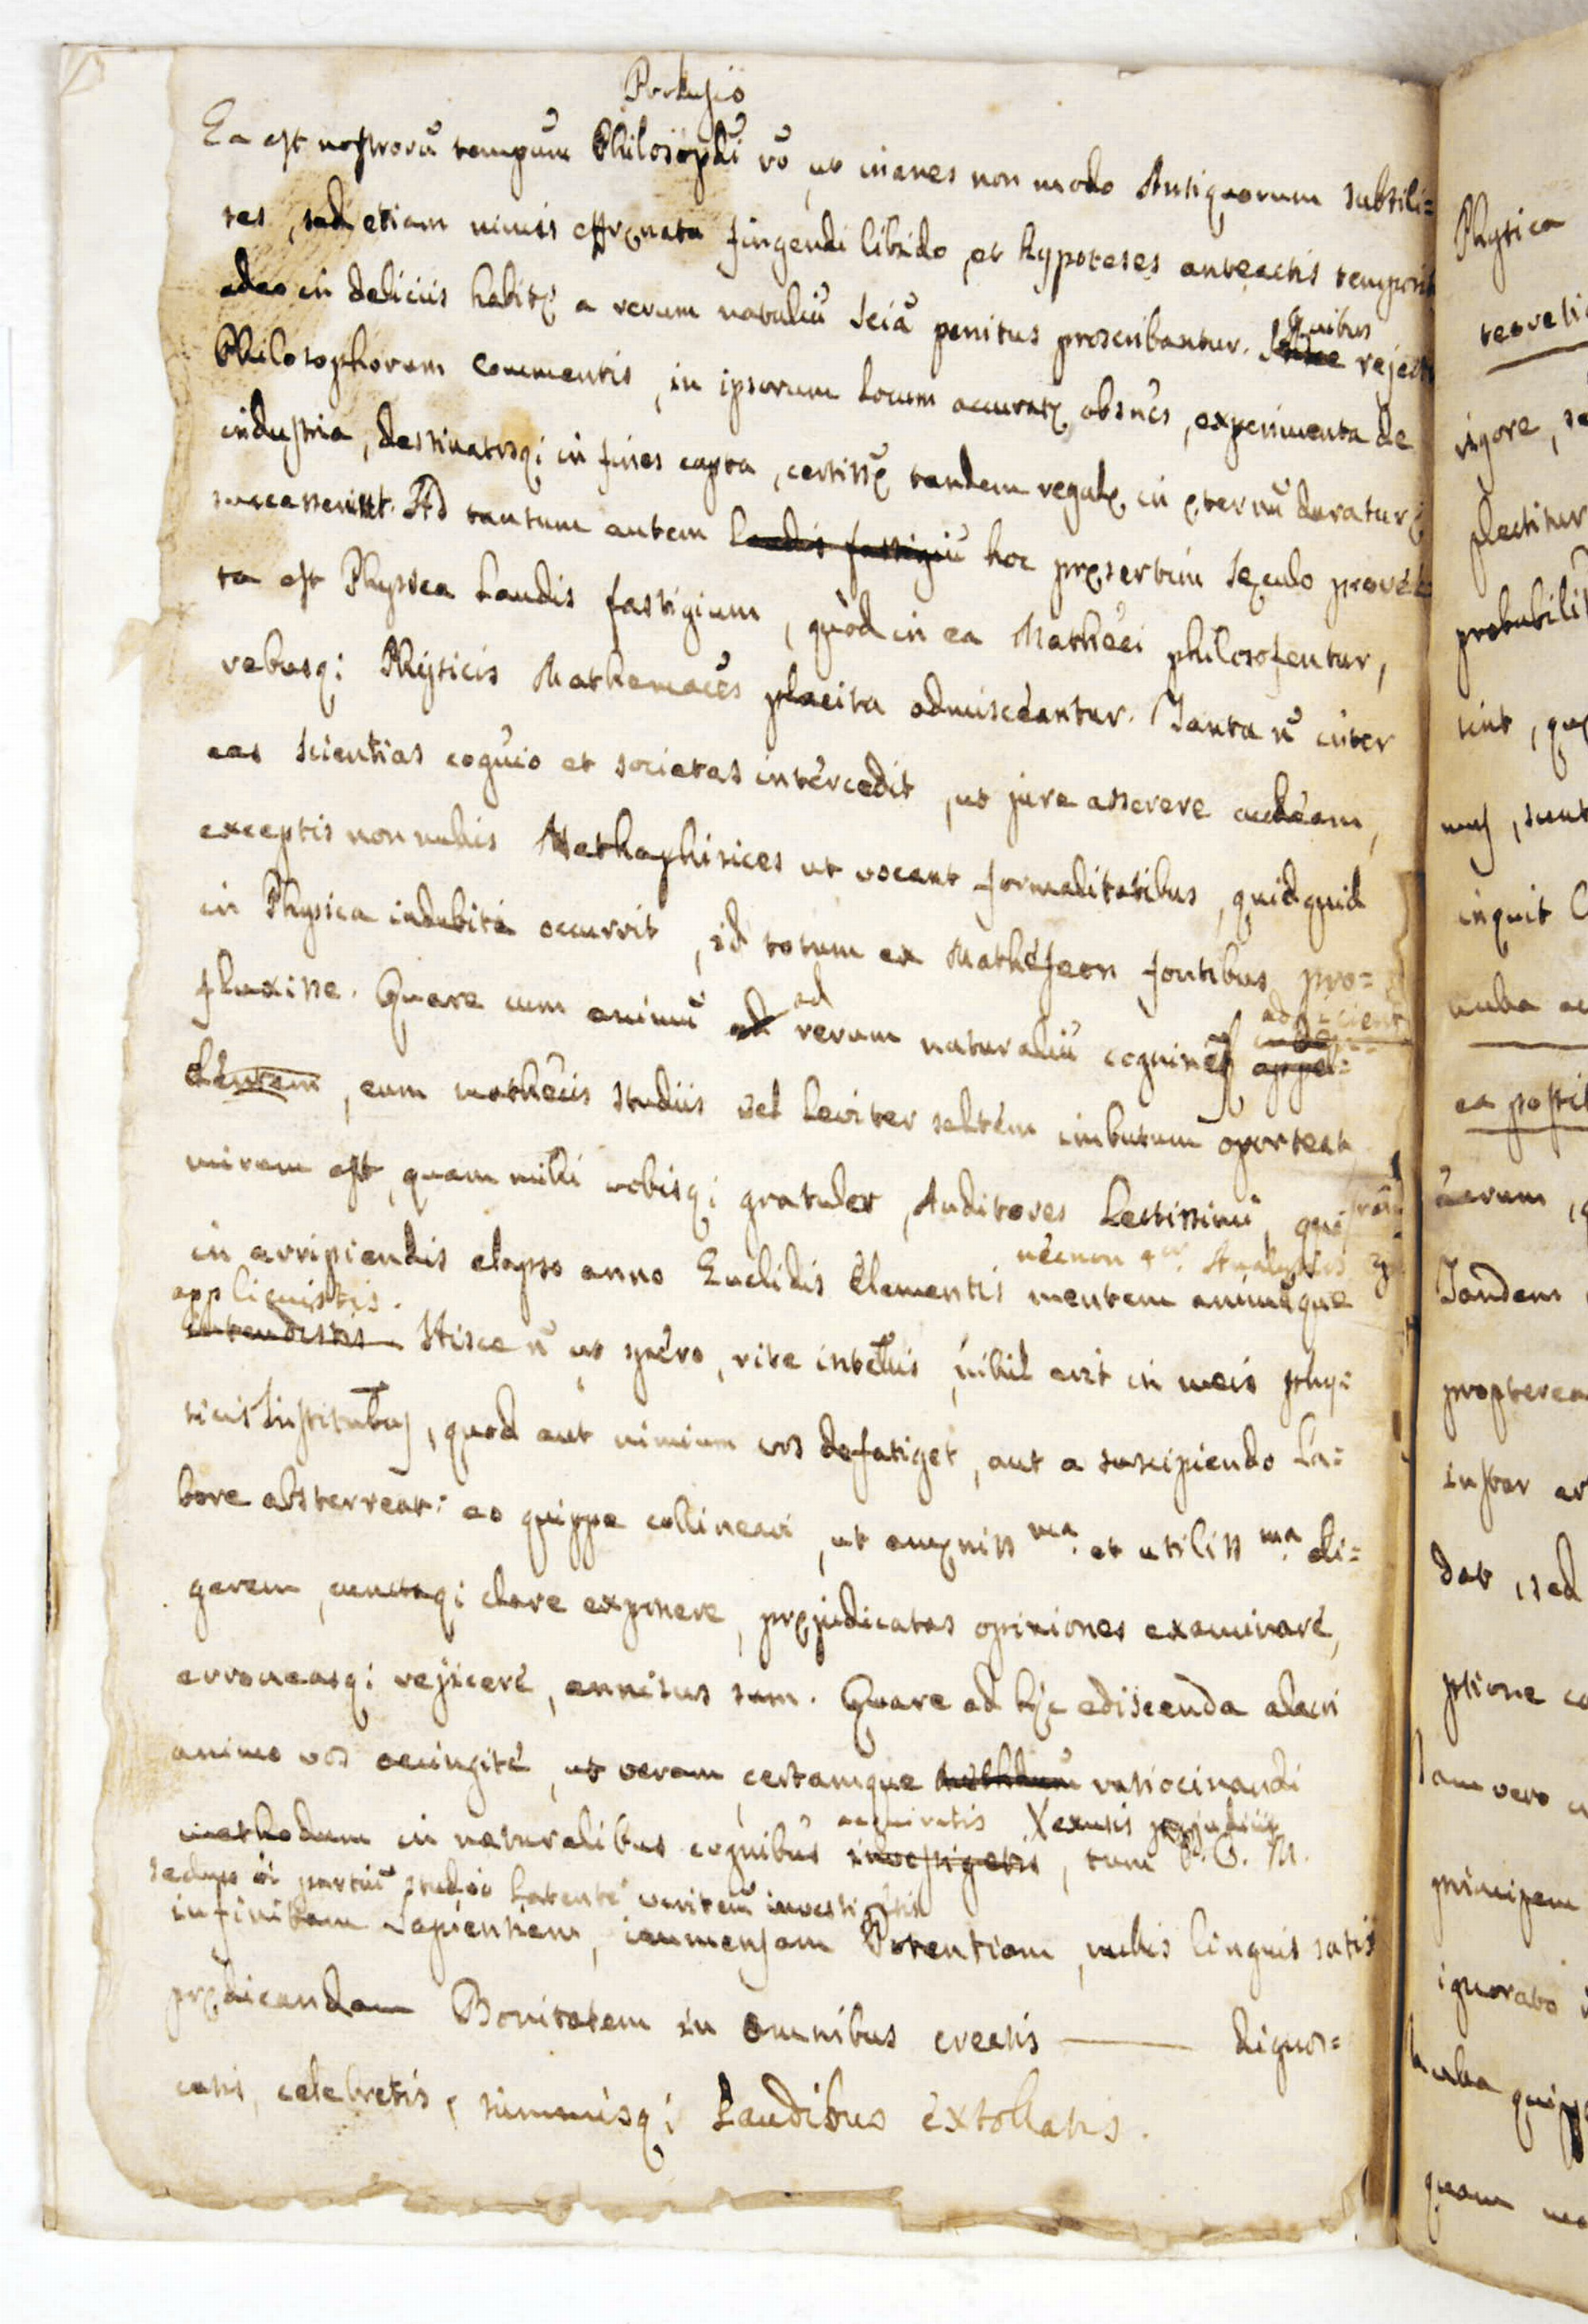 Prolusio
Ea est nostrorū tempum̄ Philosophi rō, ut inanes non modo Antiquorum subtili=
tes, sed etiam nimis effręnata fingendi libido, et hypoteses anteactis temporib
adeo in deliciis habitę a rerum naturaliū sciā penitus proscribantur. Quibus reject
Philosophorum commentis, in ipsorum locum accuratę obsnes, experimenta de
industria, destinatosq; in fines capta, certissę tandem regulę in ęternū duraturę
successerunt. Ad tantum autem laudis fastigiū hoc pręsertim sęculo provec=
ta est Physica laudis fastigium, quòd in ea Matheci philosofentur,
rebusq; Physicis Mathemaces placita admisceantur. Tanta n̄ inter
eas scientias cognio et societas intercedit, ut jure asserere audeam,
exceptis non nullis Methaphisices ut vocant formalitatibus, quidquid
in Physica indubitē occurrit, id totum ex Matheseon fontibus pro=
fluxisse. Quare cum animū ad ad rerum naturaliū cognines adjicient appel=
lentem, eum mathecis studiis vel leviter saltem imbutum oporteat
mirum est, quam mihi vobisq; gratuler, Auditores Lectissimi, qui
necnon Analysis
in arripiendis elapso anno Euclidis Elementis mentem animūque
applicuistis.
intendistis Hisce n̄ ut spero, rite intellis, nihil erit in meis phy=
sicis Institutbus, quod aut nimium vos defatiget, aut a suscipiendo la=
bore absterreat: eo quippe collineavi, ut amęniss ma. et utiliss ma. di=
gerem, cunctaq; clare exponere, pręjudicatas opiniones examinare,
erroneasq; rejicere, ennisus sum. Quare ad hęc ediscenda alacri
animo vos accingite, ut veram, certamque methodum ratiocinandi
acquiratis X exutis pręjudiciis
methodum in naturalibus cognibus investigetis, tum D. O. M.
secluso oi partiū studio latentē veritem investigetis
infinitam Sapientiam, immensam Potentiam, nullis linguis satis
prędicandam Bonitatem in omnibus creatis ——— dignos=
catis, celebretis, summisq; Laudibus extollatis.
Physica
teoretic
rigore, se
plectitur
probabilit
sint, quę
mus, sunt
inquit
nulla
ea posti
Tandem
propterea
instar
dat, sed
ptione
Iam vero
principem
ignorato
quipp
quam